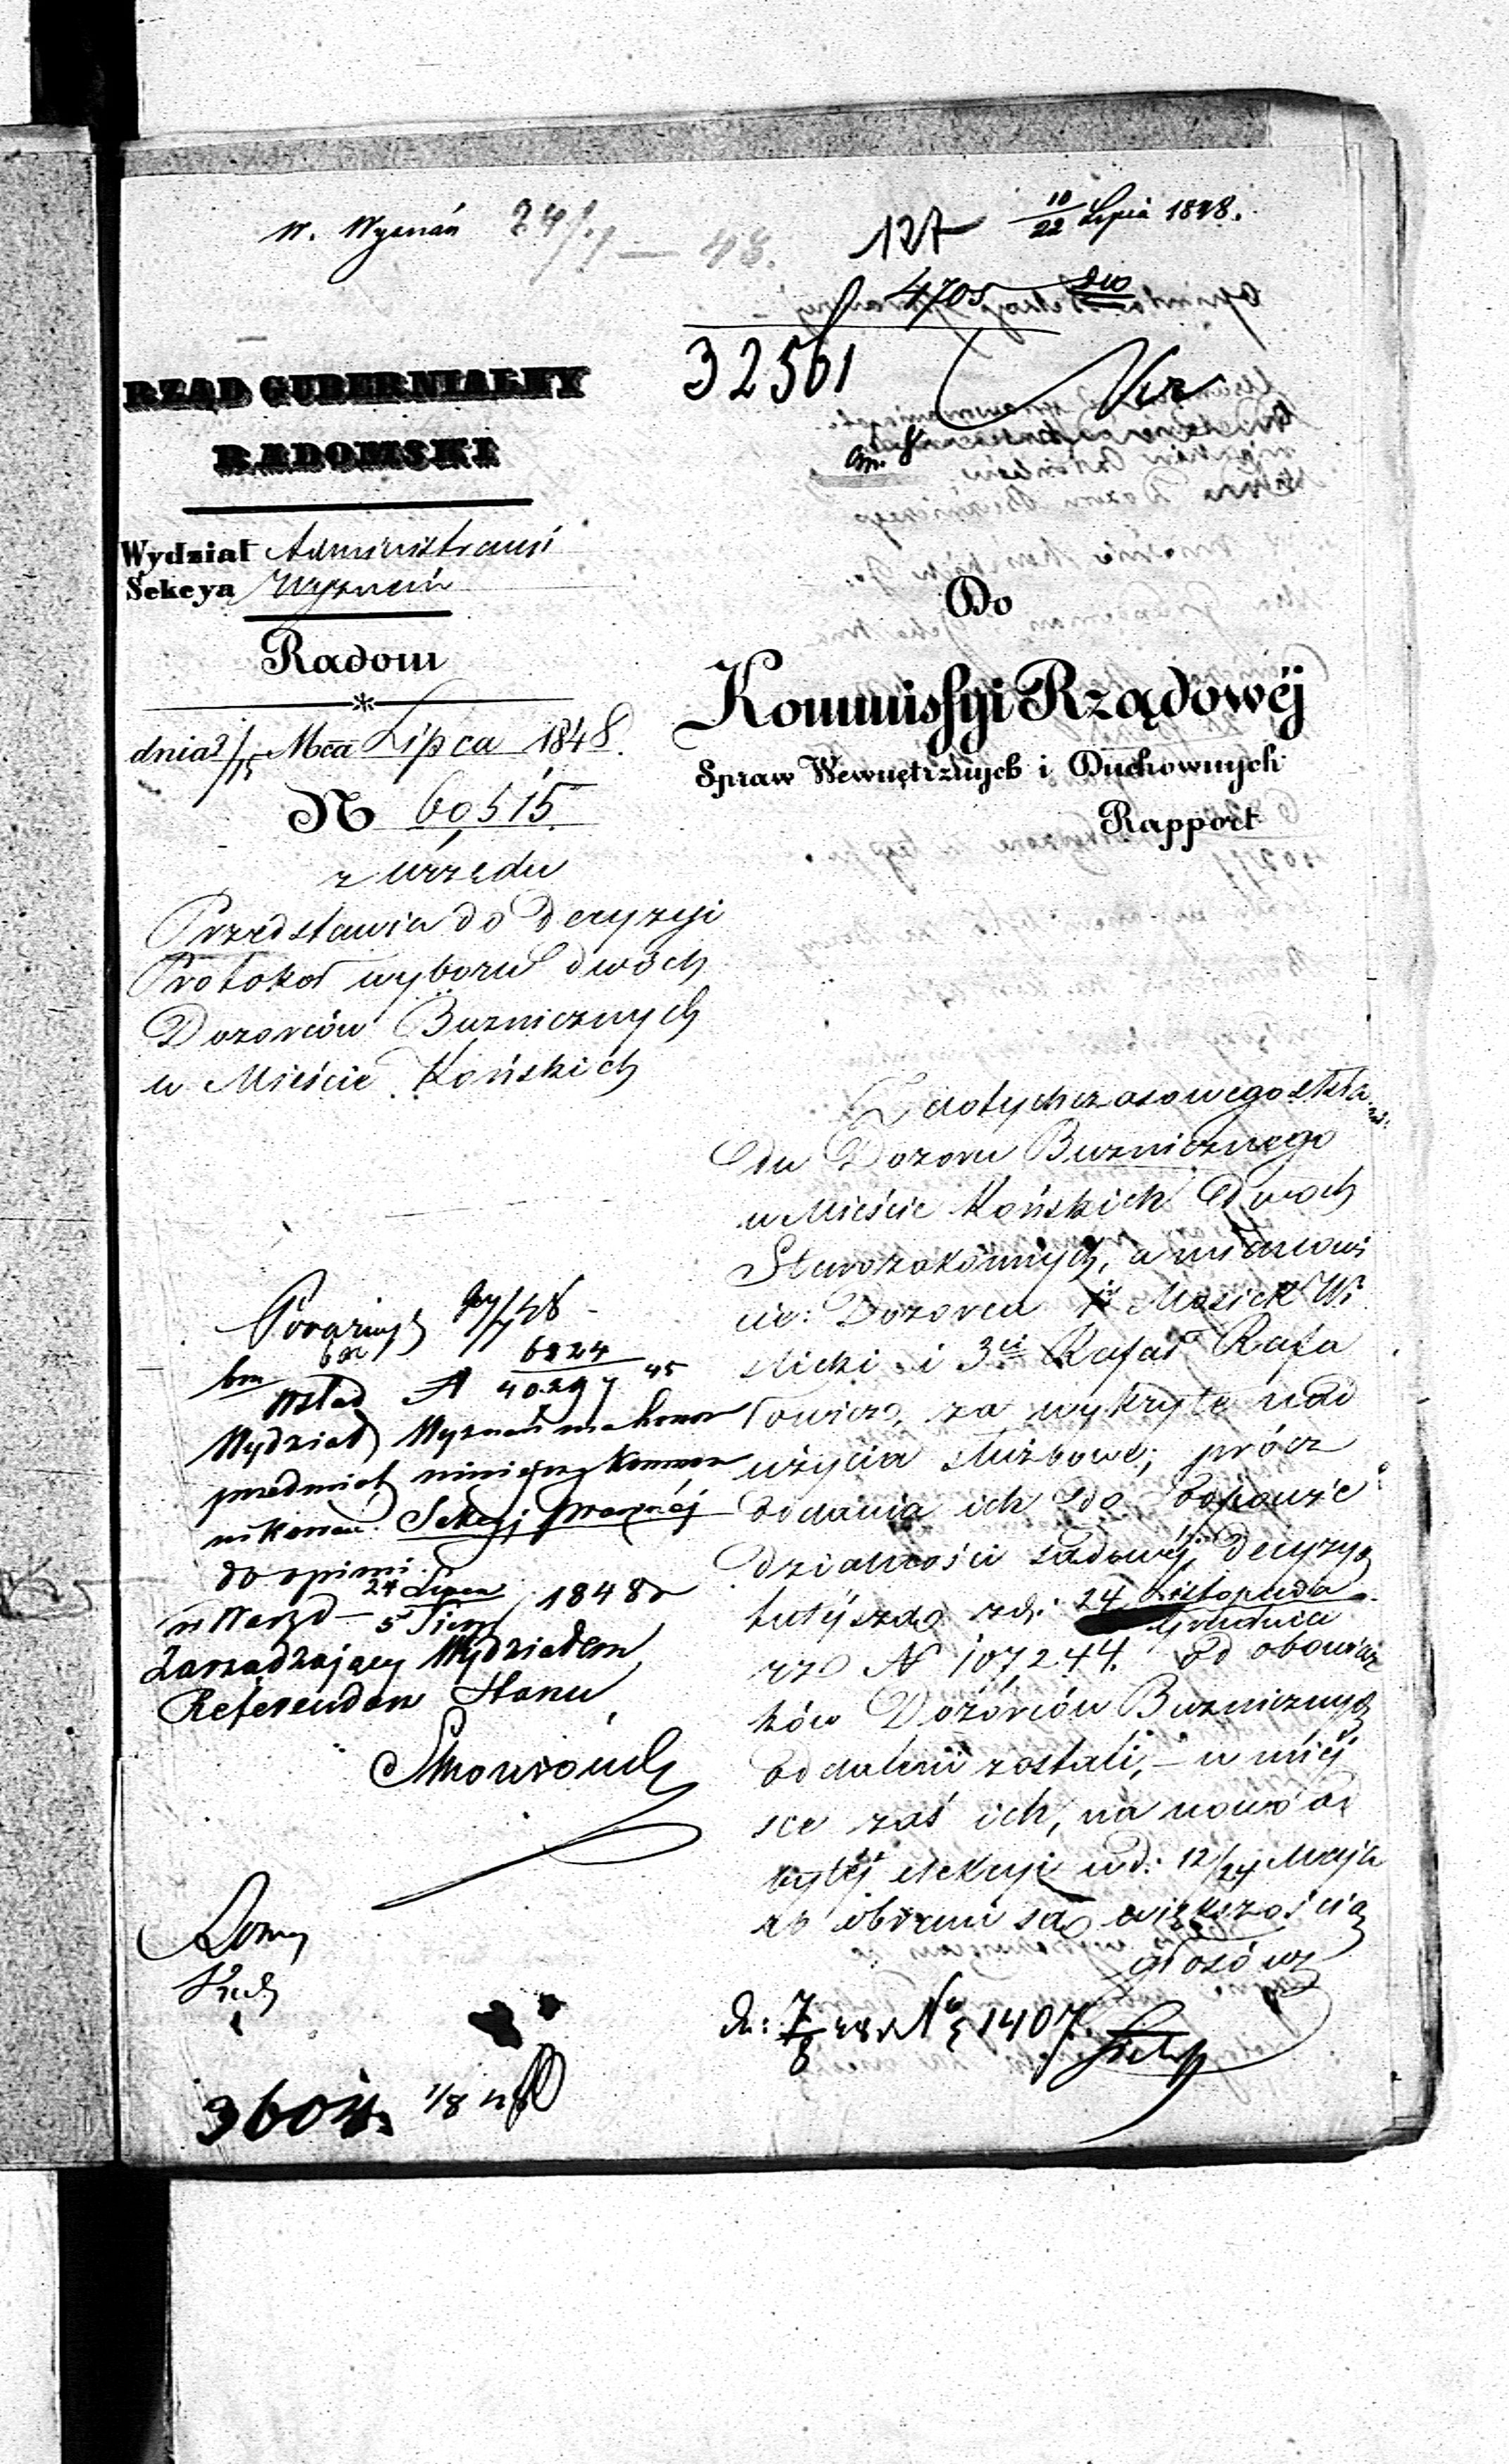 W. Wyznań 24/7 — 48.
127
10/22 Lipca 1848.
4705
32561
RZĄD GUBERNIALNY
RADOMSKI
Wydział Administracyi
Sekcya Wyznań
Radom
dnia 3/15 Mca Lipca 1848.
N 60515
z urzędu
Przedstawia do decyzyi
Protokoł wyboru dwóch
Dozorców Bużnicznych
w Mieście Końskich
Do
Kommissyi Rządowéj
Spraw Wewnętrznych i Duchownych
Rapport
Z dotychczasowego skła
du Dozoru Bużnicznego
w Mieście Końskich dwoch
Starozakonnych, a mianowi
cie: Dozorca Mosiek Wi
ślicki i 3ci Rafał Rafa
łowicz, za wykryte nad
użycia służbowe; prócz
oddania ich do odpowie
dzialności sądowéj, decyzyą
tutejszą z d: 24 Listopada
Grudnia
rz N 107244. od obowiąz
ków Dozorców Bużnicznych
oddaleni zostali, – w miéj
sce zaś ich, na nowo od
bytéj elekcyi w d: 12/24 Maja
rb obrani są większością
głosów
6824
40297 45
Wydział Wyznań ma honor
przedmiot niniejszy
Sekcyi prawnéj
do opinii
w Warsz — 24 Lipca
5 Sierp 1848 r
Zarządzający Wydziałem
Referendarz Stanu
N 1407.
3604. 1/8 48